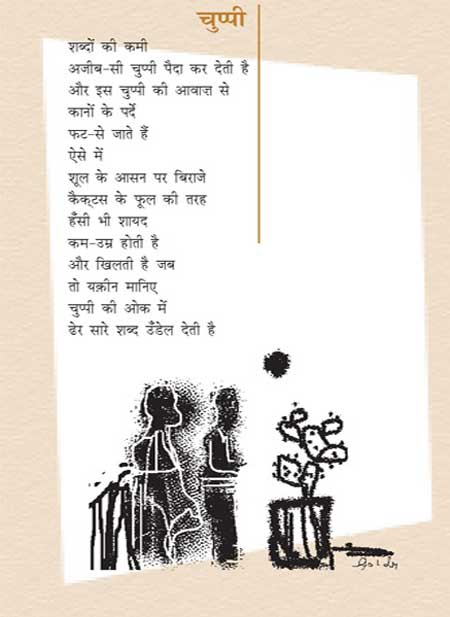 चुप्पी
शब्दों की कमी
अजीब-सी चुप्पी पैदा कर देती है
और इस चुप्पी की आवाज़ से
कानों के पर्दे
फट-से जाते हैं
ऐसे में
शूल के आसन पर बिराजे
कैक्टस के फूल की तरह
हँसी भी शायद
कम-उम्र होती है
और खिलती है जब
तो यक़ीन मानिए
चुप्पी की ओक में
ढेर सारे शब्द उँडेल देती है